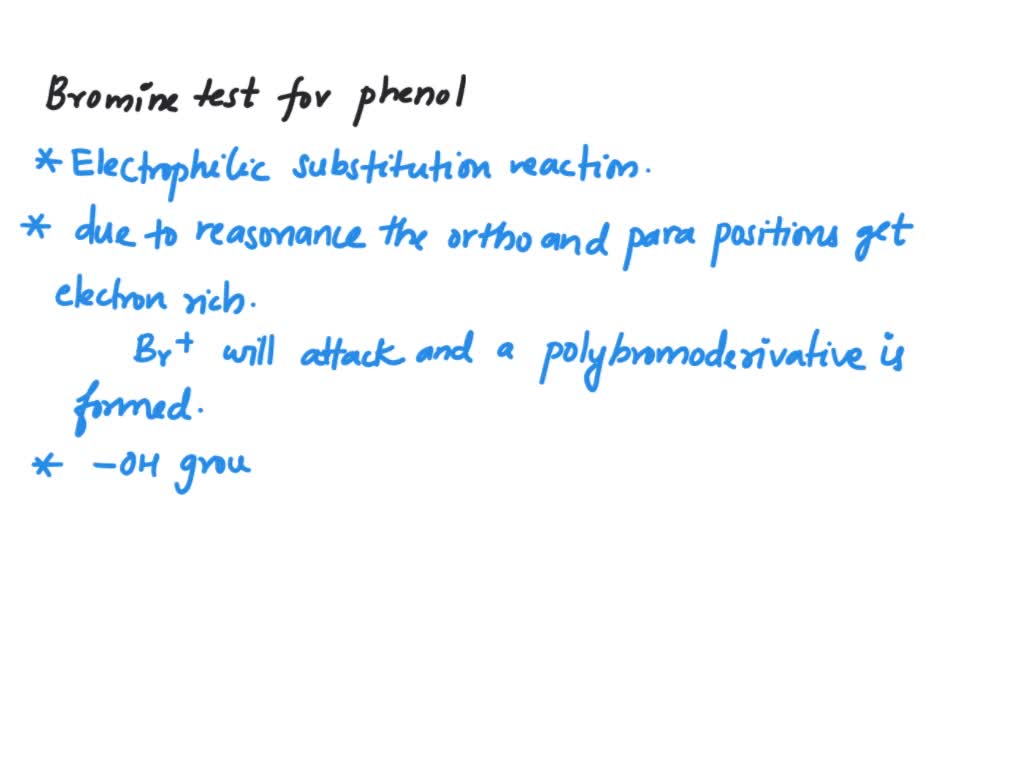 Bromine test for phenol
* Electrophilic substitution reaction.
* due to reasonance the ortho and para positions get
electron rich.
Br+ will attack and a polybromoderivative is
formed.
* -OH grou